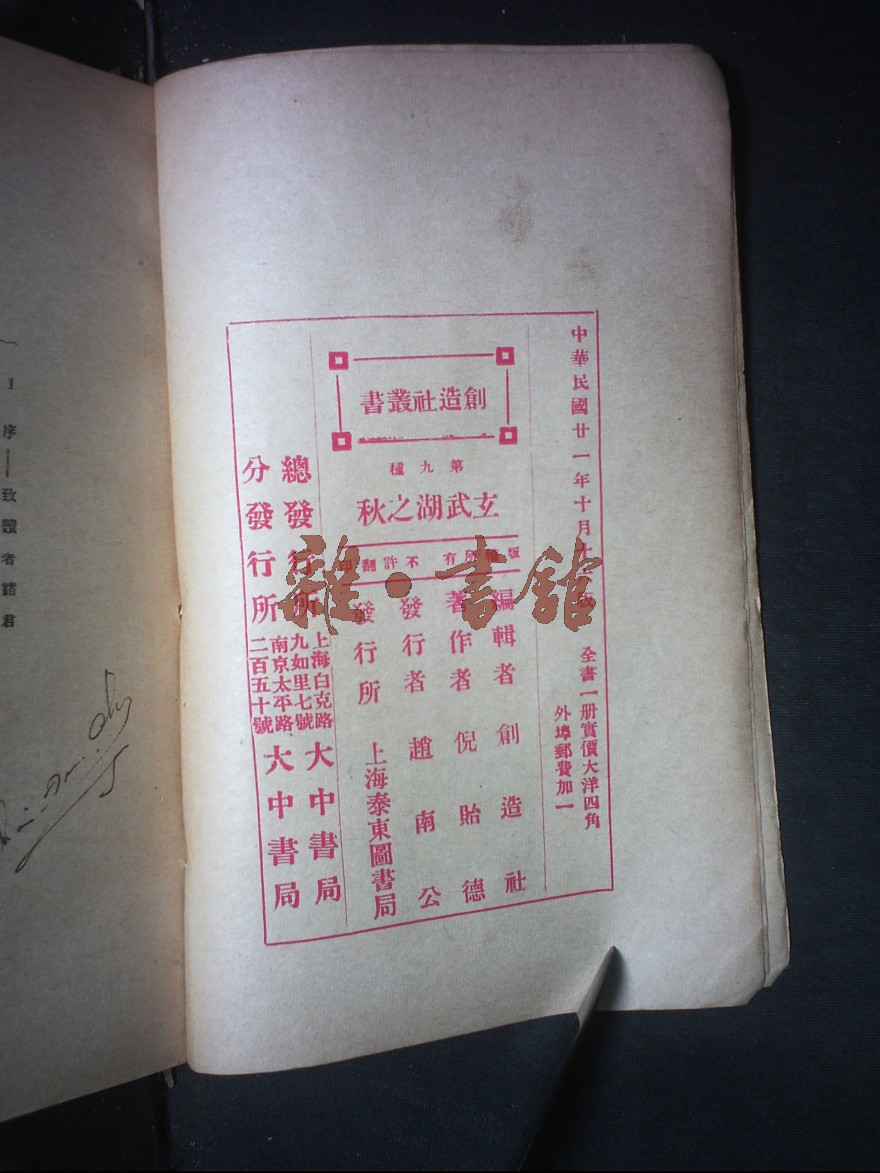 中華民國廿一年十月十
版
全書一册實價大洋四角
外埠郵費加一
創造社叢書
第九種
玄武湖之秋
版 所有 不許翻印
編輯者 創造社
著作者 倪貽德
發行者 趙南公
發行所 上海泰東圖書局
總發行所 上海白克路九如里七號 大中書局
分發行所 南京太平路二百五十號 大中書局
I 序——致讀者諸君
雅·書館